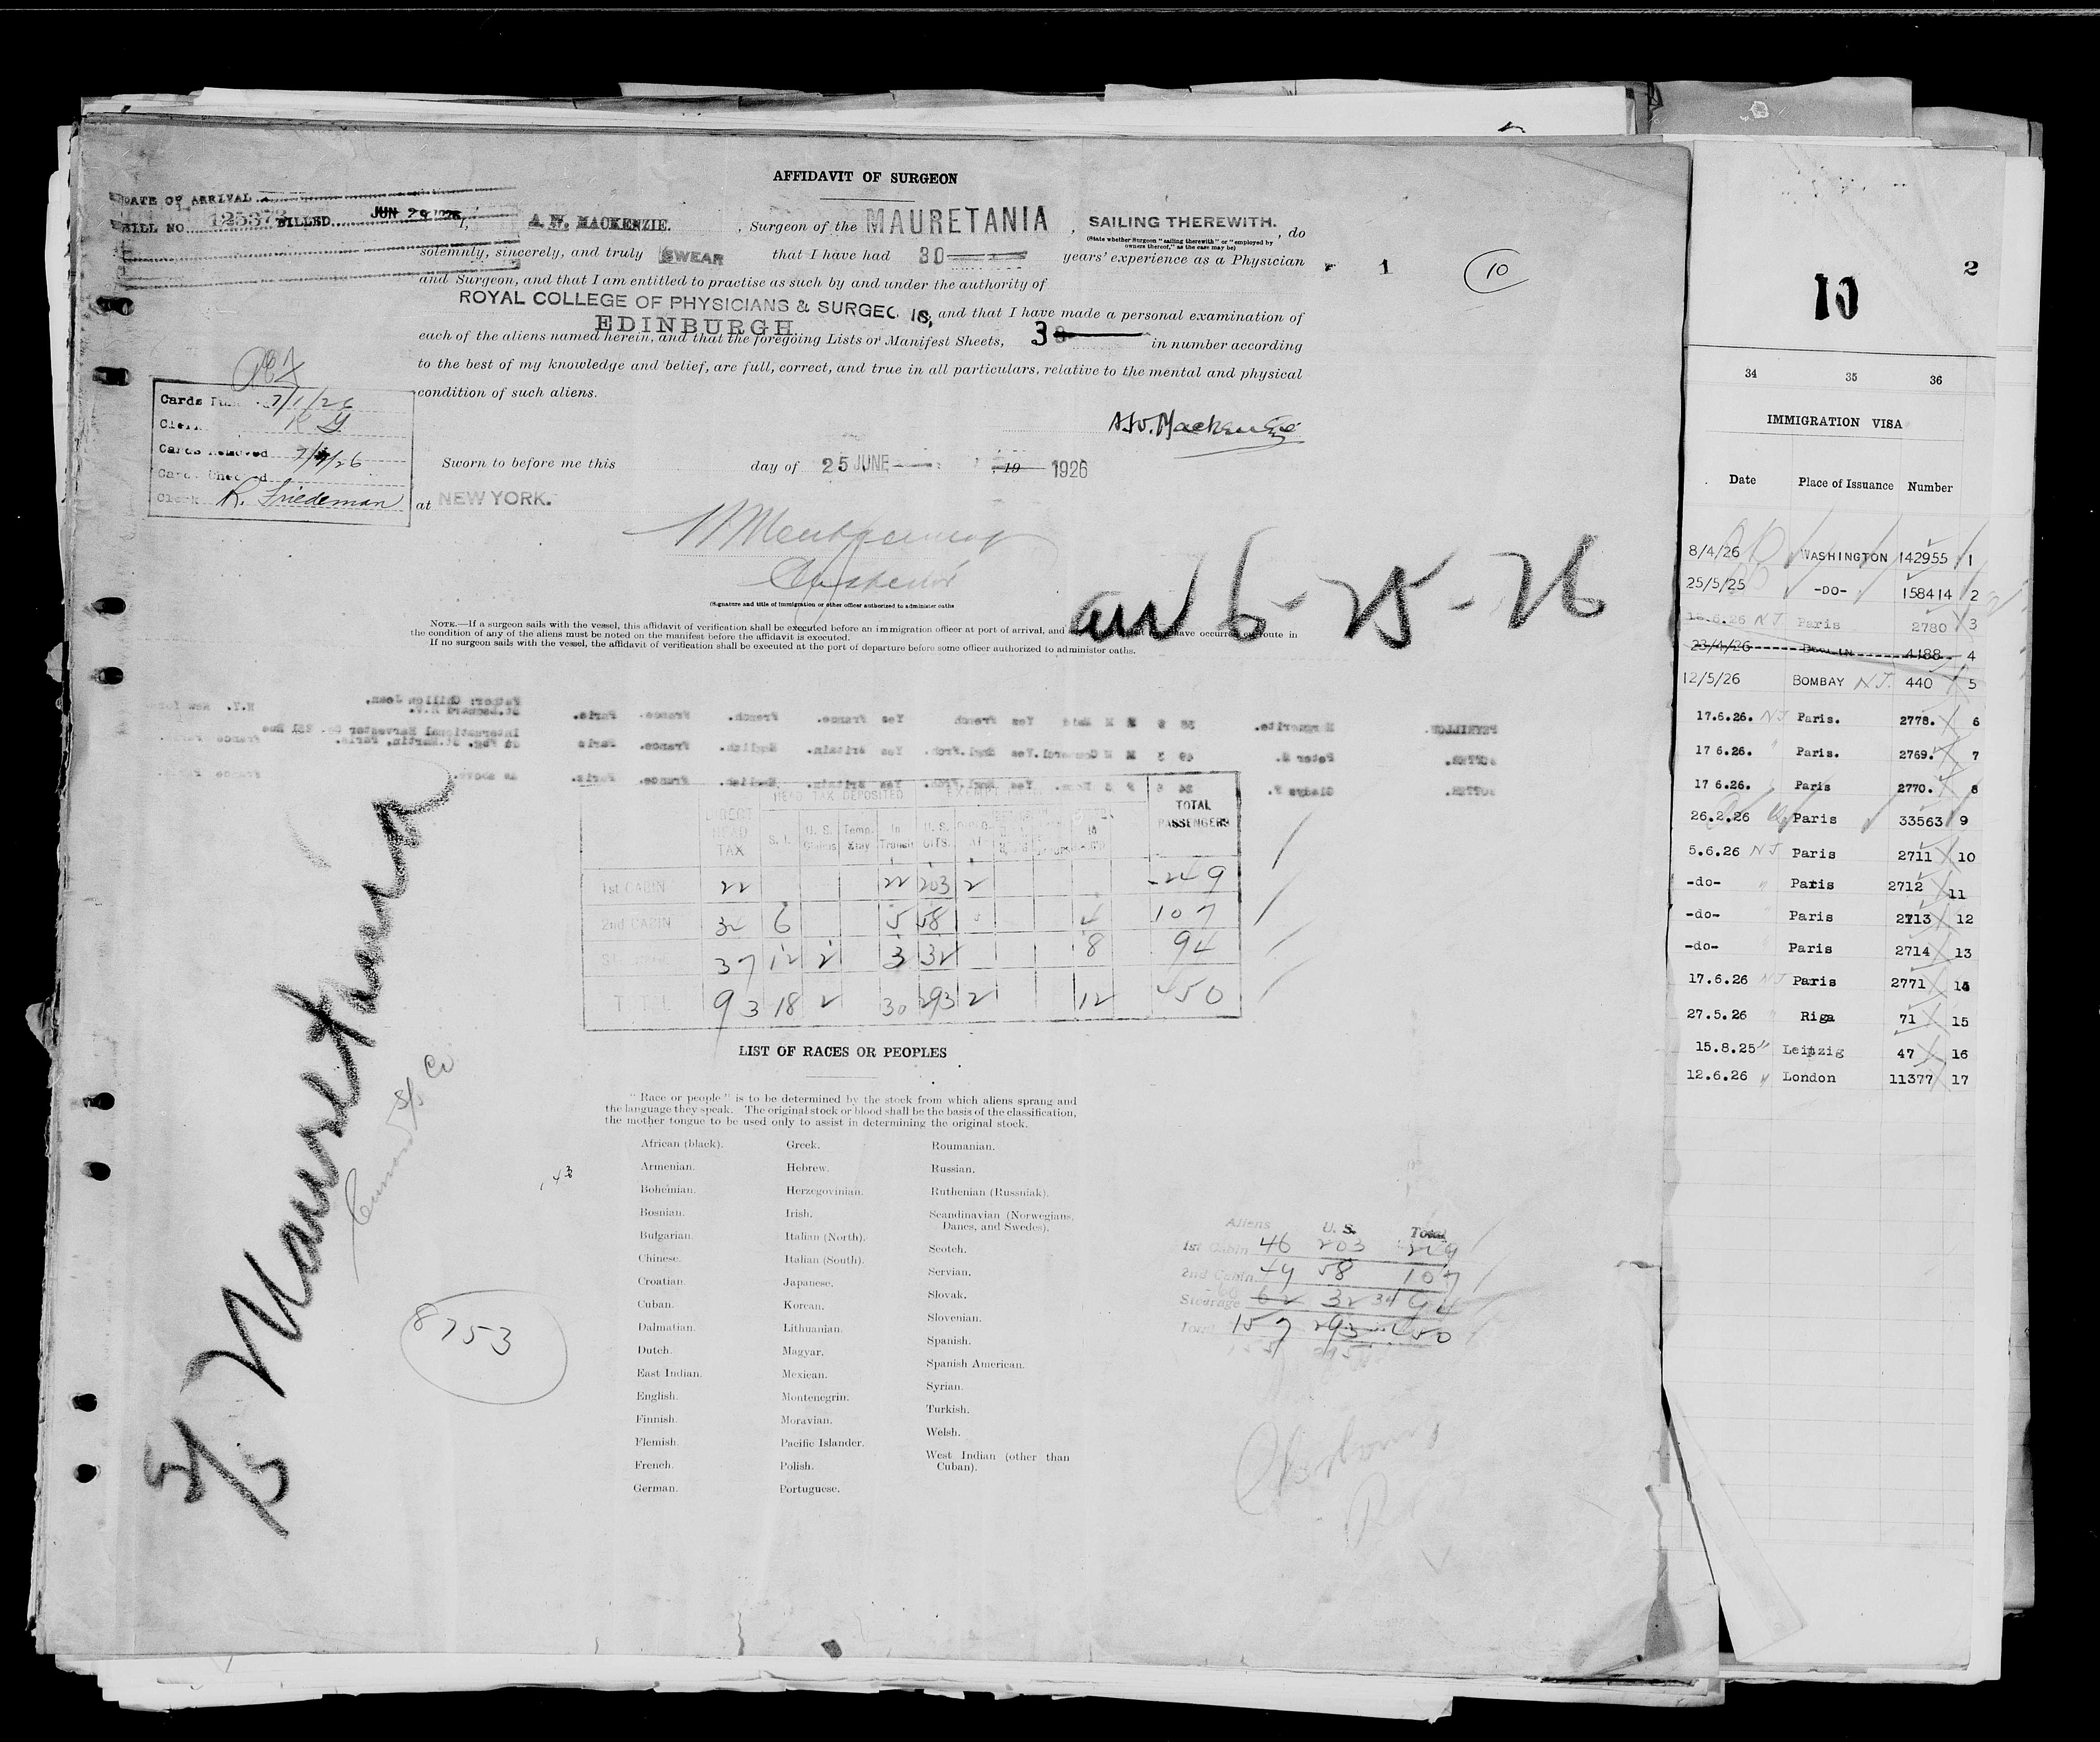 AFFIDAVIT OF SURGEON
DATE OF ARRIVAL
BILL NO. 125373 BILLED JUN 29 1926
I, A. W. MACKENZIE. , Surgeon of the MAURETANIA , SAILING THEREWITH. , do
(State whether Surgeon "sailing therewith" or "employed by owners thereof," as the case may be)
solemnly, sincerely, and truly SWEAR that I have had 30 years' experience as a Physician
1
10
and Surgeon, and that I am entitled to practise as such by and under the authority of
ROYAL COLLEGE OF PHYSICIANS & SURGEONS, and that I have made a personal examination of
EDINBURGH
each of the aliens named herein, and that the foregoing Lists or Manifest Sheets, 3 in number according
to the best of my knowledge and belief, are full, correct, and true in all particulars, relative to the mental and physical
condition of such aliens.
A.W. Mackenzie
Cards 7/1/26
Clerk
Cards Removed 7/ /26
Cards Checked
Clerk R. Friedeman
Sworn to before me this day of 25 JUNE 19 1926
at NEW YORK.
(Signature and title of immigration or other officer authorized to administer oaths
arr 6-25-26
NOTE.—If a surgeon sails with the vessel, this affidavit of verification shall be executed before an immigration officer at port of arrival, and have occurred en route in
the condition of any of the aliens must be noted on the manifest before the affidavit is executed.
If no surgeon sails with the vessel, the affidavit of verification shall be executed at the port of departure before some officer authorized to administer oaths.
HEAD TAX DEPOSITED
DIRECT HEAD TAX S. I. U. S. Temp. Stay In Transit U. S. CITS. TOTAL PASSENGERS
1st CABIN 22 22 203 2 249
2nd CABIN 34 6 5 58 4 107
37 12 2 3 32 8 94
TOTAL 93 18 2 30 293 2 12 450
S/S Mauretania
Cunard S/S Co
8753
LIST OF RACES OR PEOPLES
"Race or people" is to be determined by the stock from which aliens sprang and
the language they speak. The original stock or blood shall be the basis of the classification,
the mother tongue to be used only to assist in determining the original stock.
African (black).
Armenian.
Bohemian.
Bosnian.
Bulgarian.
Chinese.
Croatian.
Cuban.
Dalmatian.
Dutch.
East Indian.
English.
Finnish.
Flemish.
French.
German.
Greek.
Hebrew.
Herzegovinian.
Irish.
Italian (North).
Italian (South).
Japanese.
Korean.
Lithuanian.
Magyar.
Mexican.
Montenegrin.
Moravian.
Pacific Islander.
Polish.
Portuguese.
Roumanian.
Russian.
Ruthenian (Russniak).
Scandinavian (Norwegians,
Danes, and Swedes).
Scotch.
Servian.
Slovak.
Slovenian.
Spanish.
Spanish American.
Syrian.
Turkish.
Welsh.
West Indian (other than
Cuban).
Aliens U. S. Total
1st Cabin 46 203 249
2nd Cabin 49 58 107
Steerage 62 32 34 94
Total 157 293 450
Cherbourg
10
2
34 35 36
IMMIGRATION VISA
Date Place of Issuance Number
8/4/26 WASHINGTON 142955 1
25/5/25 -DO- 158414 2
18.6.26 NJ Paris 2780 3
23/4/26 DUBLIN 4188 4
12/5/26 BOMBAY NJ. 440 5
17.6.26. NJ Paris. 2778. 6
17 6.26. " Paris. 2769. 7
17 6.26. Paris 2770. 8
26.2.26 Paris 33563 9
5.6.26 NJ Paris 2711 10
-do- " Paris 2712 11
-do- Paris 2713 12
-do- Paris 2714 13
17.6.26 NJ Paris 2771 14
27.5.26 " Riga 71 15
15.8.25 " Leipzig 47 16
12.6.26 " London 11377 17